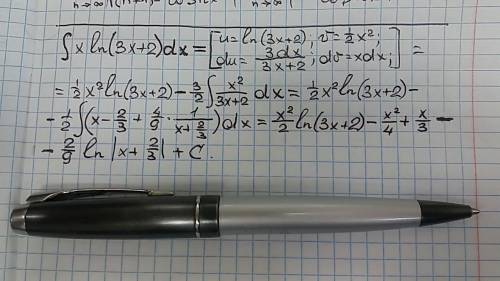 ∫x ln(3x+2)dx = [u = ln(3x+2); v = ½x²; du = 3dx/(3x+2); dv = xdx;] =
= ½x² ln(3x+2) - 3/2 ∫ x²/(3x+2) dx = ½x² ln(3x+2) -
- ½∫(x - 2/3 + 4/9 · 1/(x + 2/3))dx = x²/2 ln(3x+2) - x²/4 + x/3 -
- 2/9 ln|x + 2/3| + C.